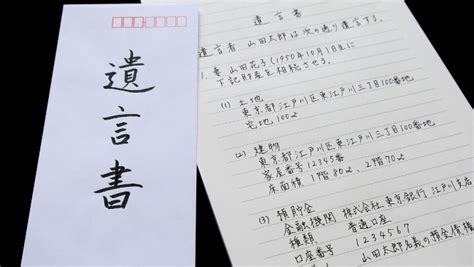 遺言書
遺言書
遺言者 山田太郎は次の通り遺言する。
1. 妻 山田花子(1950年10月1日生)に
下記財産を相続させる。
(1) 土地
東京都江戸川区東江戸川三丁目100番地
宅地,100㎡
(2) 建物
東京都江戸川区東江戸川三丁目100番地
家屋番号 12345番
床面積 1階80㎡、2階70㎡
(3) 預貯金
金融機関 株式会社 東京銀行 江戸川支店
種類 普通口座
口座番号 1234567
山田太郎名義の預金債権